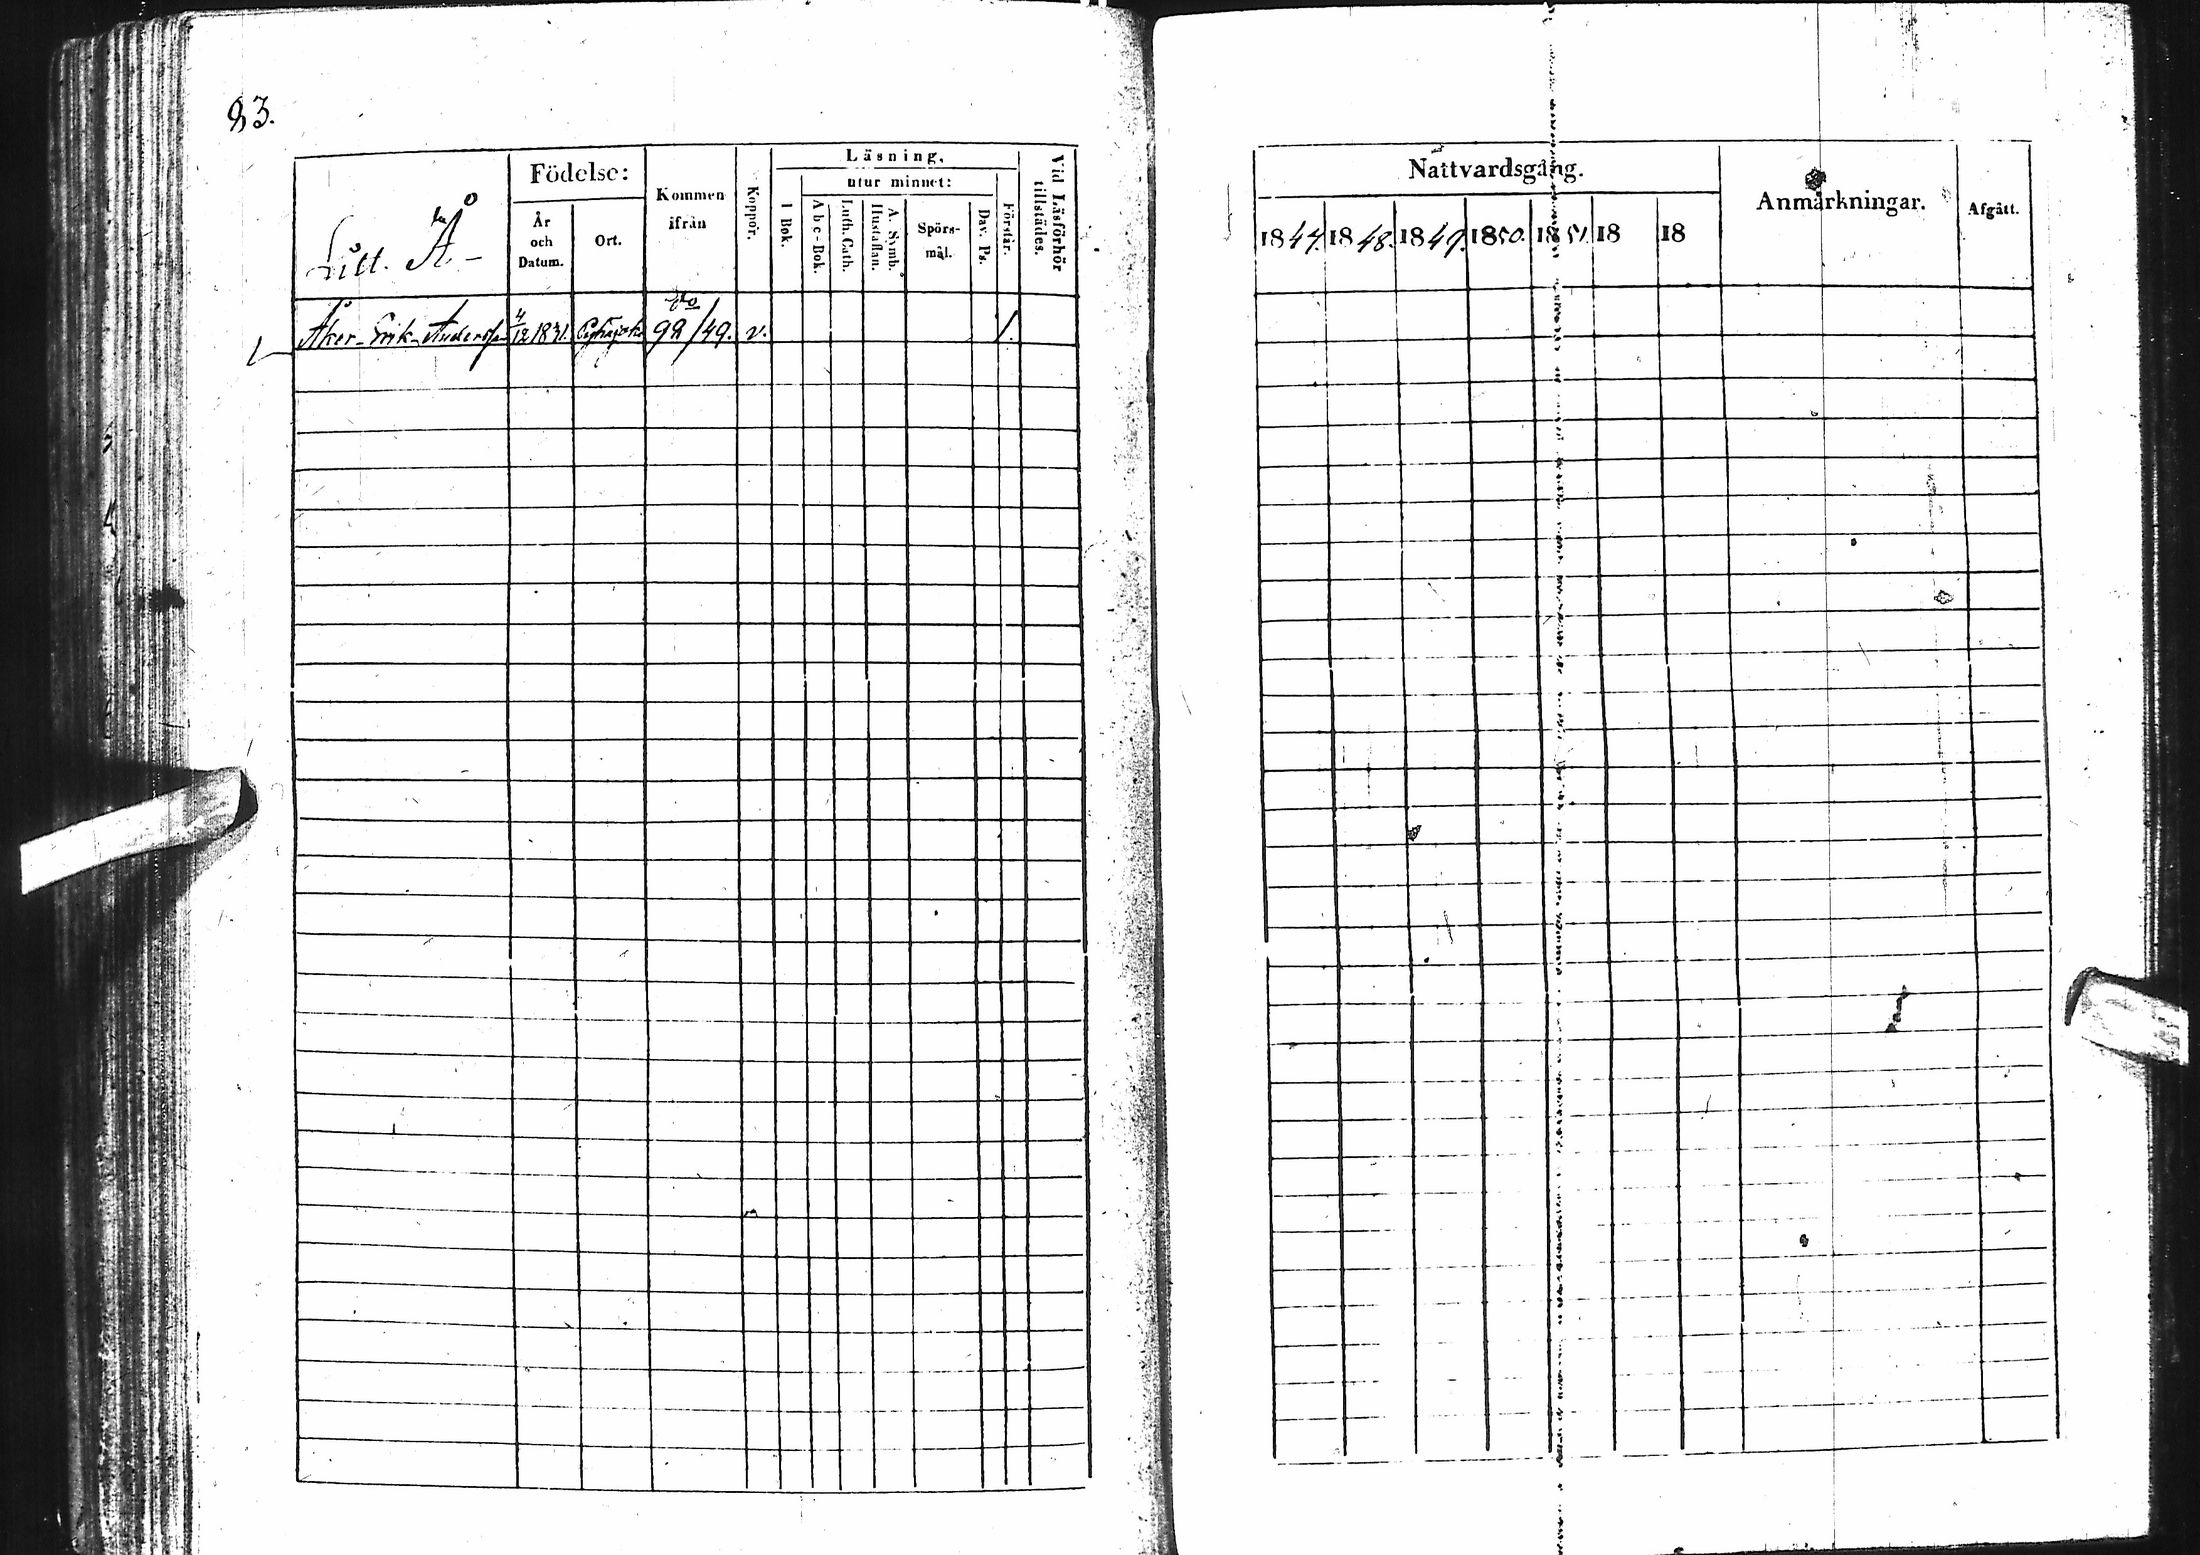 83.
Litt. Å.
Födelse:
År och Datum.
Ort.
Kommen ifrån
Koppor.
Läsning,
utur minnet:
I Bok.
Abc-Bok.
Luth. Cath.
Hustaflan.
A. Symb.
Spörs-mål.
Dav. Ps.
Förstår.
Vid Läsförhör tillstädes.
Åker Erik Andersson 4/12 1831. 92/49. v. /.
Nattvardsgång.
1847. 1848. 1849. 1850. 1851. 18 18
Anmärkningar.
Afgått.